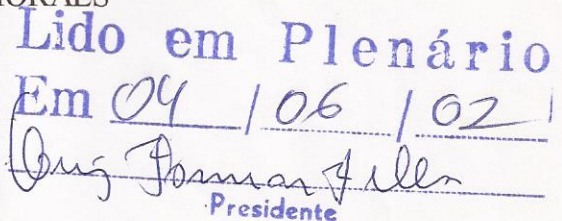 MORAES
Lido em Plenário
Em 04 / 06 / 02
Presidente